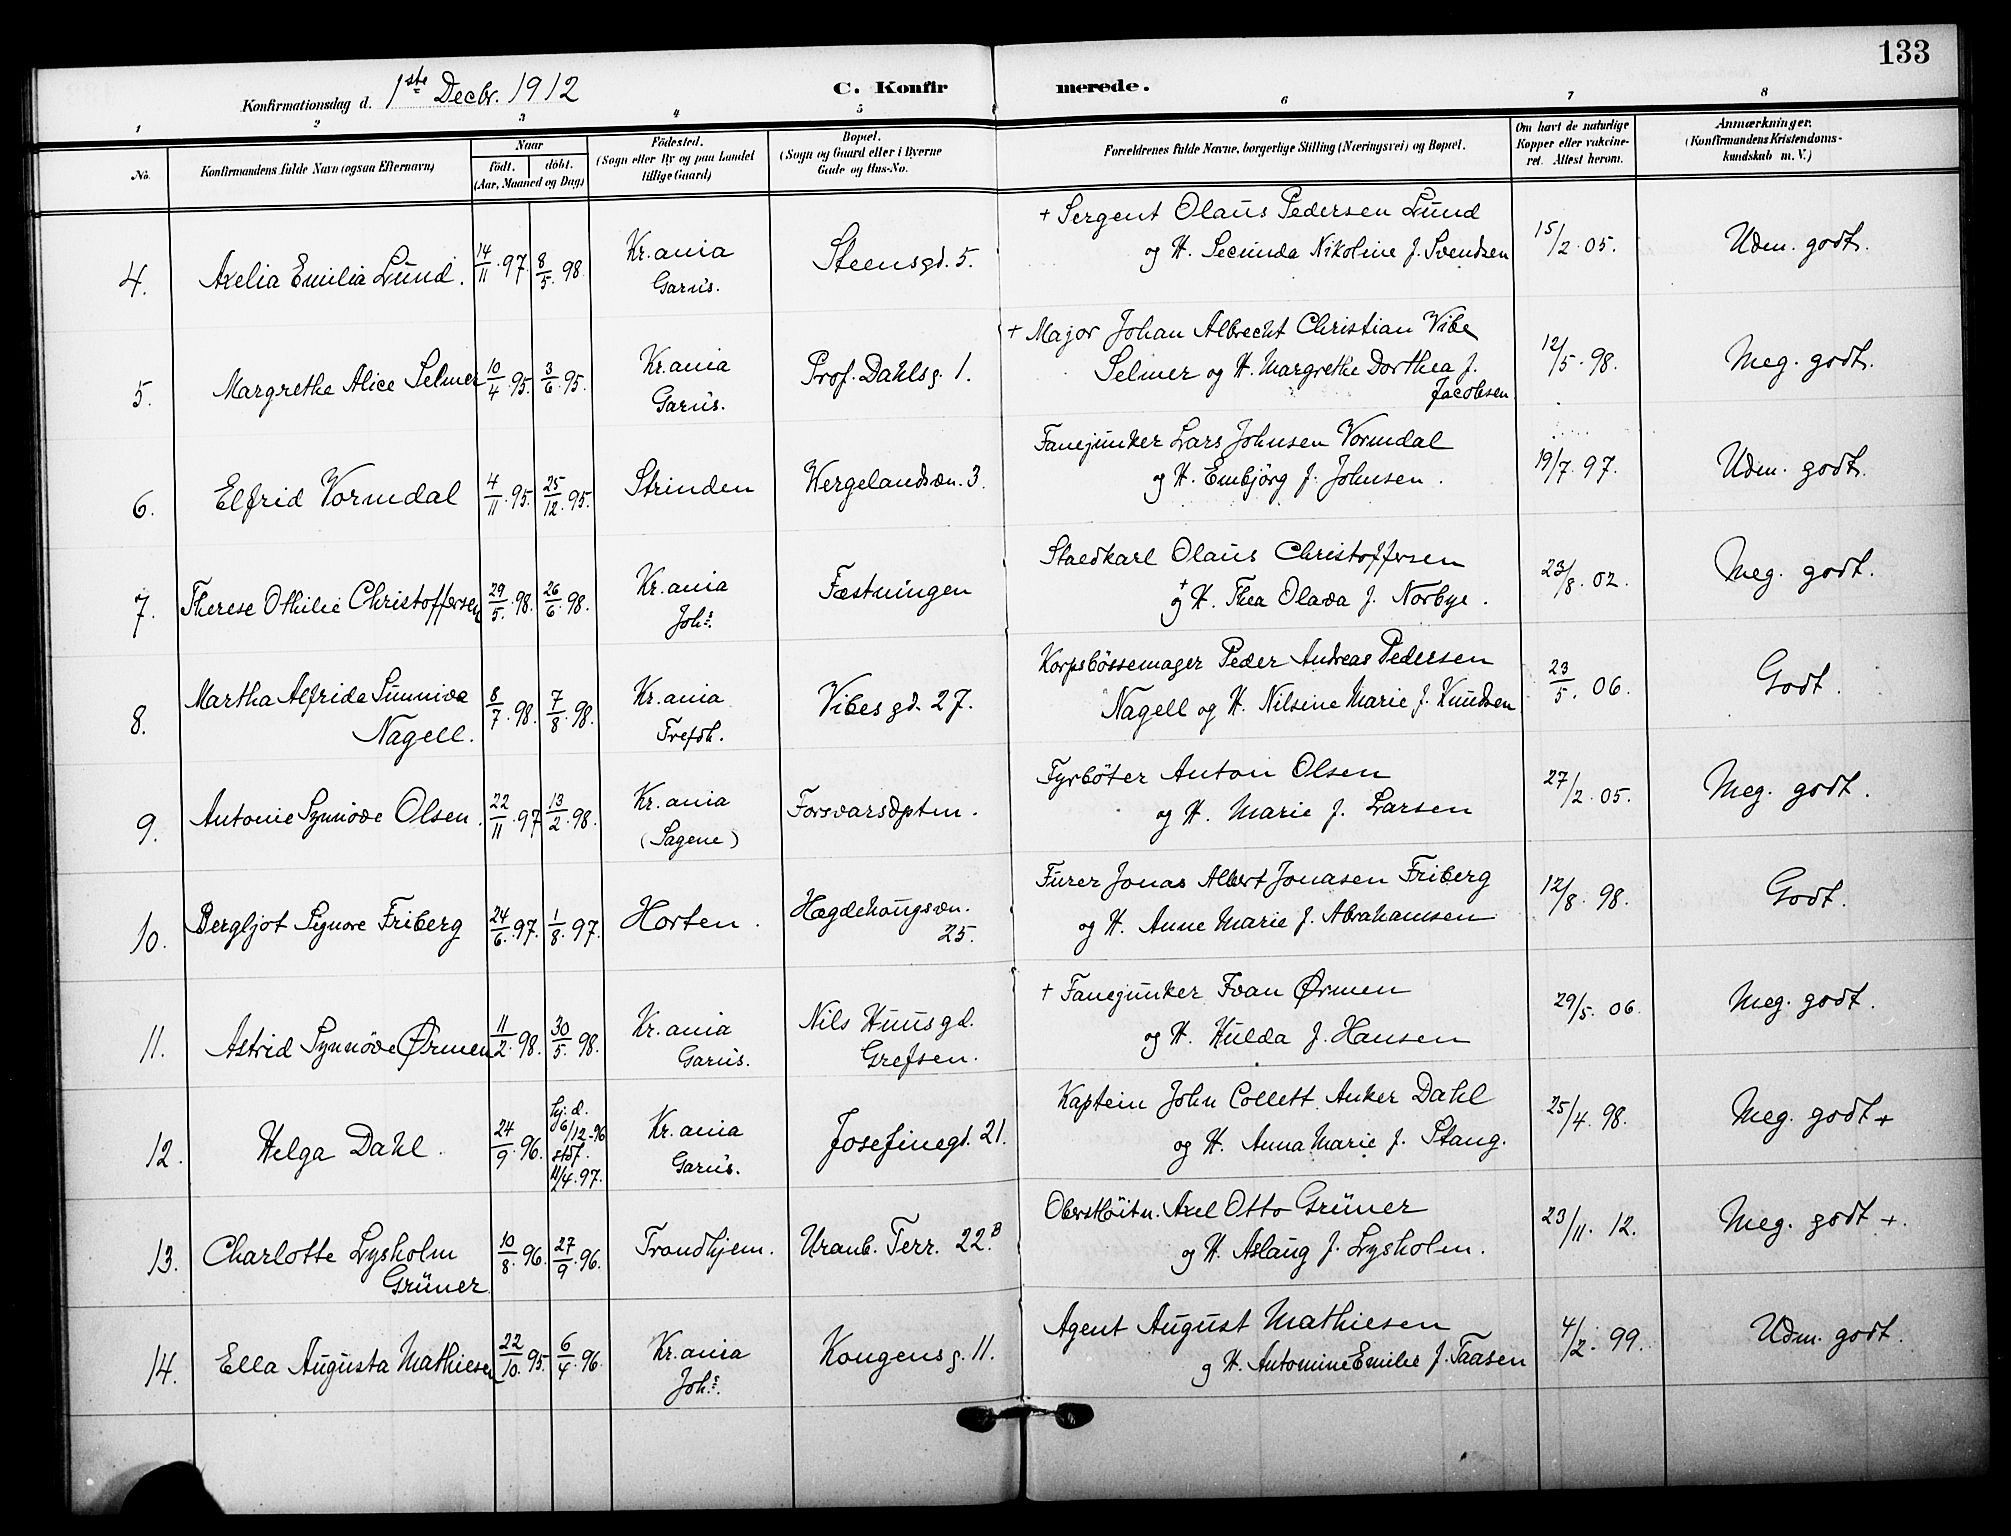 133
Konfirmationsdag d. 1ste Decbr. 1912
C. Konfir merede.
1 2 3 4 5 6 7 8
No.
Konfirmandens fulde Navn (ogsaa Efternavn)
Naar
født. døbt.
(Aar, Maaned og Dag)
Fødested.
(Sogn eller By og paa Landet
tillige Gaard)
Bopæl.
(Sogn og Gaard eller i Byerne
Gade og Hus-No.
Forældrenes fulde Navne, borgerlige Stilling (Næringsvei) og Bopæl.
Om havt de naturlige
Kopper eller vakcine-
ret. Attest herom.
Anmærkninger.
(Konfirmandens Kristendoms-
kundskab m. V.)
4. Axelia Emilia Lund. 14/11.97 8/5.98 Kr.ania Garns. Steensgd. 5.
+ Sergent Olaus Pedersen Lund
og H. Secunda Nikoline f. Svendsen 15/2.05. Udm. godt.
5. Margrethe Alice Selmer 10/4.95. 3/6.95. Kr.ania Garns. Prof. Dahlsg. 1.
+ Major Johan Albrecht Christian Vibe
Selmer og H. Margrethe Dorthea f.
Jacobsen 12/5.98. Meg. godt.
6. Elfrid Vormdal 4/11.95. 25/12.95. Strinden Wergelandsvn. 3.
Fanejunker Lars Johnsen Vormdal
og H. Embjörg f. Johnsen. 19/7.97. Udm. godt.
7. Therese Othilie Christoffersen 29/5.98. 26/6.98. Kr.ania Johs. Fæstningen
Staldkarl Olaus Christoffersen
+
og H. Thea Olava f. Norbye. 23/8.02. Meg. godt.
8. Martha Alfrida Sunniva
Nagell. 8/7.98. 7/8.98. Kr.ania Trefdh. Vibesgd. 27.
Korpsbössemager Peder Andreas Pedersen
Nagell og H. Nilsine Marie f. Knudsen 23/5.06. Godt.
9. Antonie Synnöve Olsen. 22/11.97 13/2.98. Kr.ania (Sagene) Forsvarsdptm.
Fyrböter Anton Olsen
og H. Marie f. Larsen 27/2.05. Meg. godt.
10. Bergljot Signore Friberg 24/6.97. 1/8.97. Horten. Hægdehougsvn.
25.
Furer Jonas Albert Jonasen Friberg
og H. Anne Marie f. Abrahamsen 12/8.98. Godt.
11. Astrid Synnöve Ørmen 11/2.98. 30/5.98. Kr.ania Garns. Nils Huusgd.
Grefsen.
+ Fanejunker Ivan Ørmen
og H. Hulda f. Hansen 29/5.06. Meg. godt.
12. Helga Dahl. 24/9.96. hj.d.
6/12.96
stdf.
11/4.97. Kr.ania Garns. Josefinegd. 21.
Kaptein John Collett Anker Dahl
og H. Anna Marie f. Stang. 25/4.98. Meg. godt +
13. Charlotte Lysholm
Grüner 10/8.96. 27/9.96. Trondhjem. Uranb. Terr. 22.B
Oberstlöitn. Axel Otto Grüner
og H. Aslaug f. Lysholm. 23/11.12. Meg. godt +.
14. Ella Augusta Mathiesen 22/10.95. 6/4.96. Kr.ania Johs. Kongensg. 11.
Agent August Mathiesen
g H. Antomine Emilie f. Taasen 4/2.99. Udm. godt.